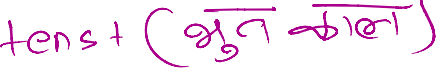 tenst (भुत काल)